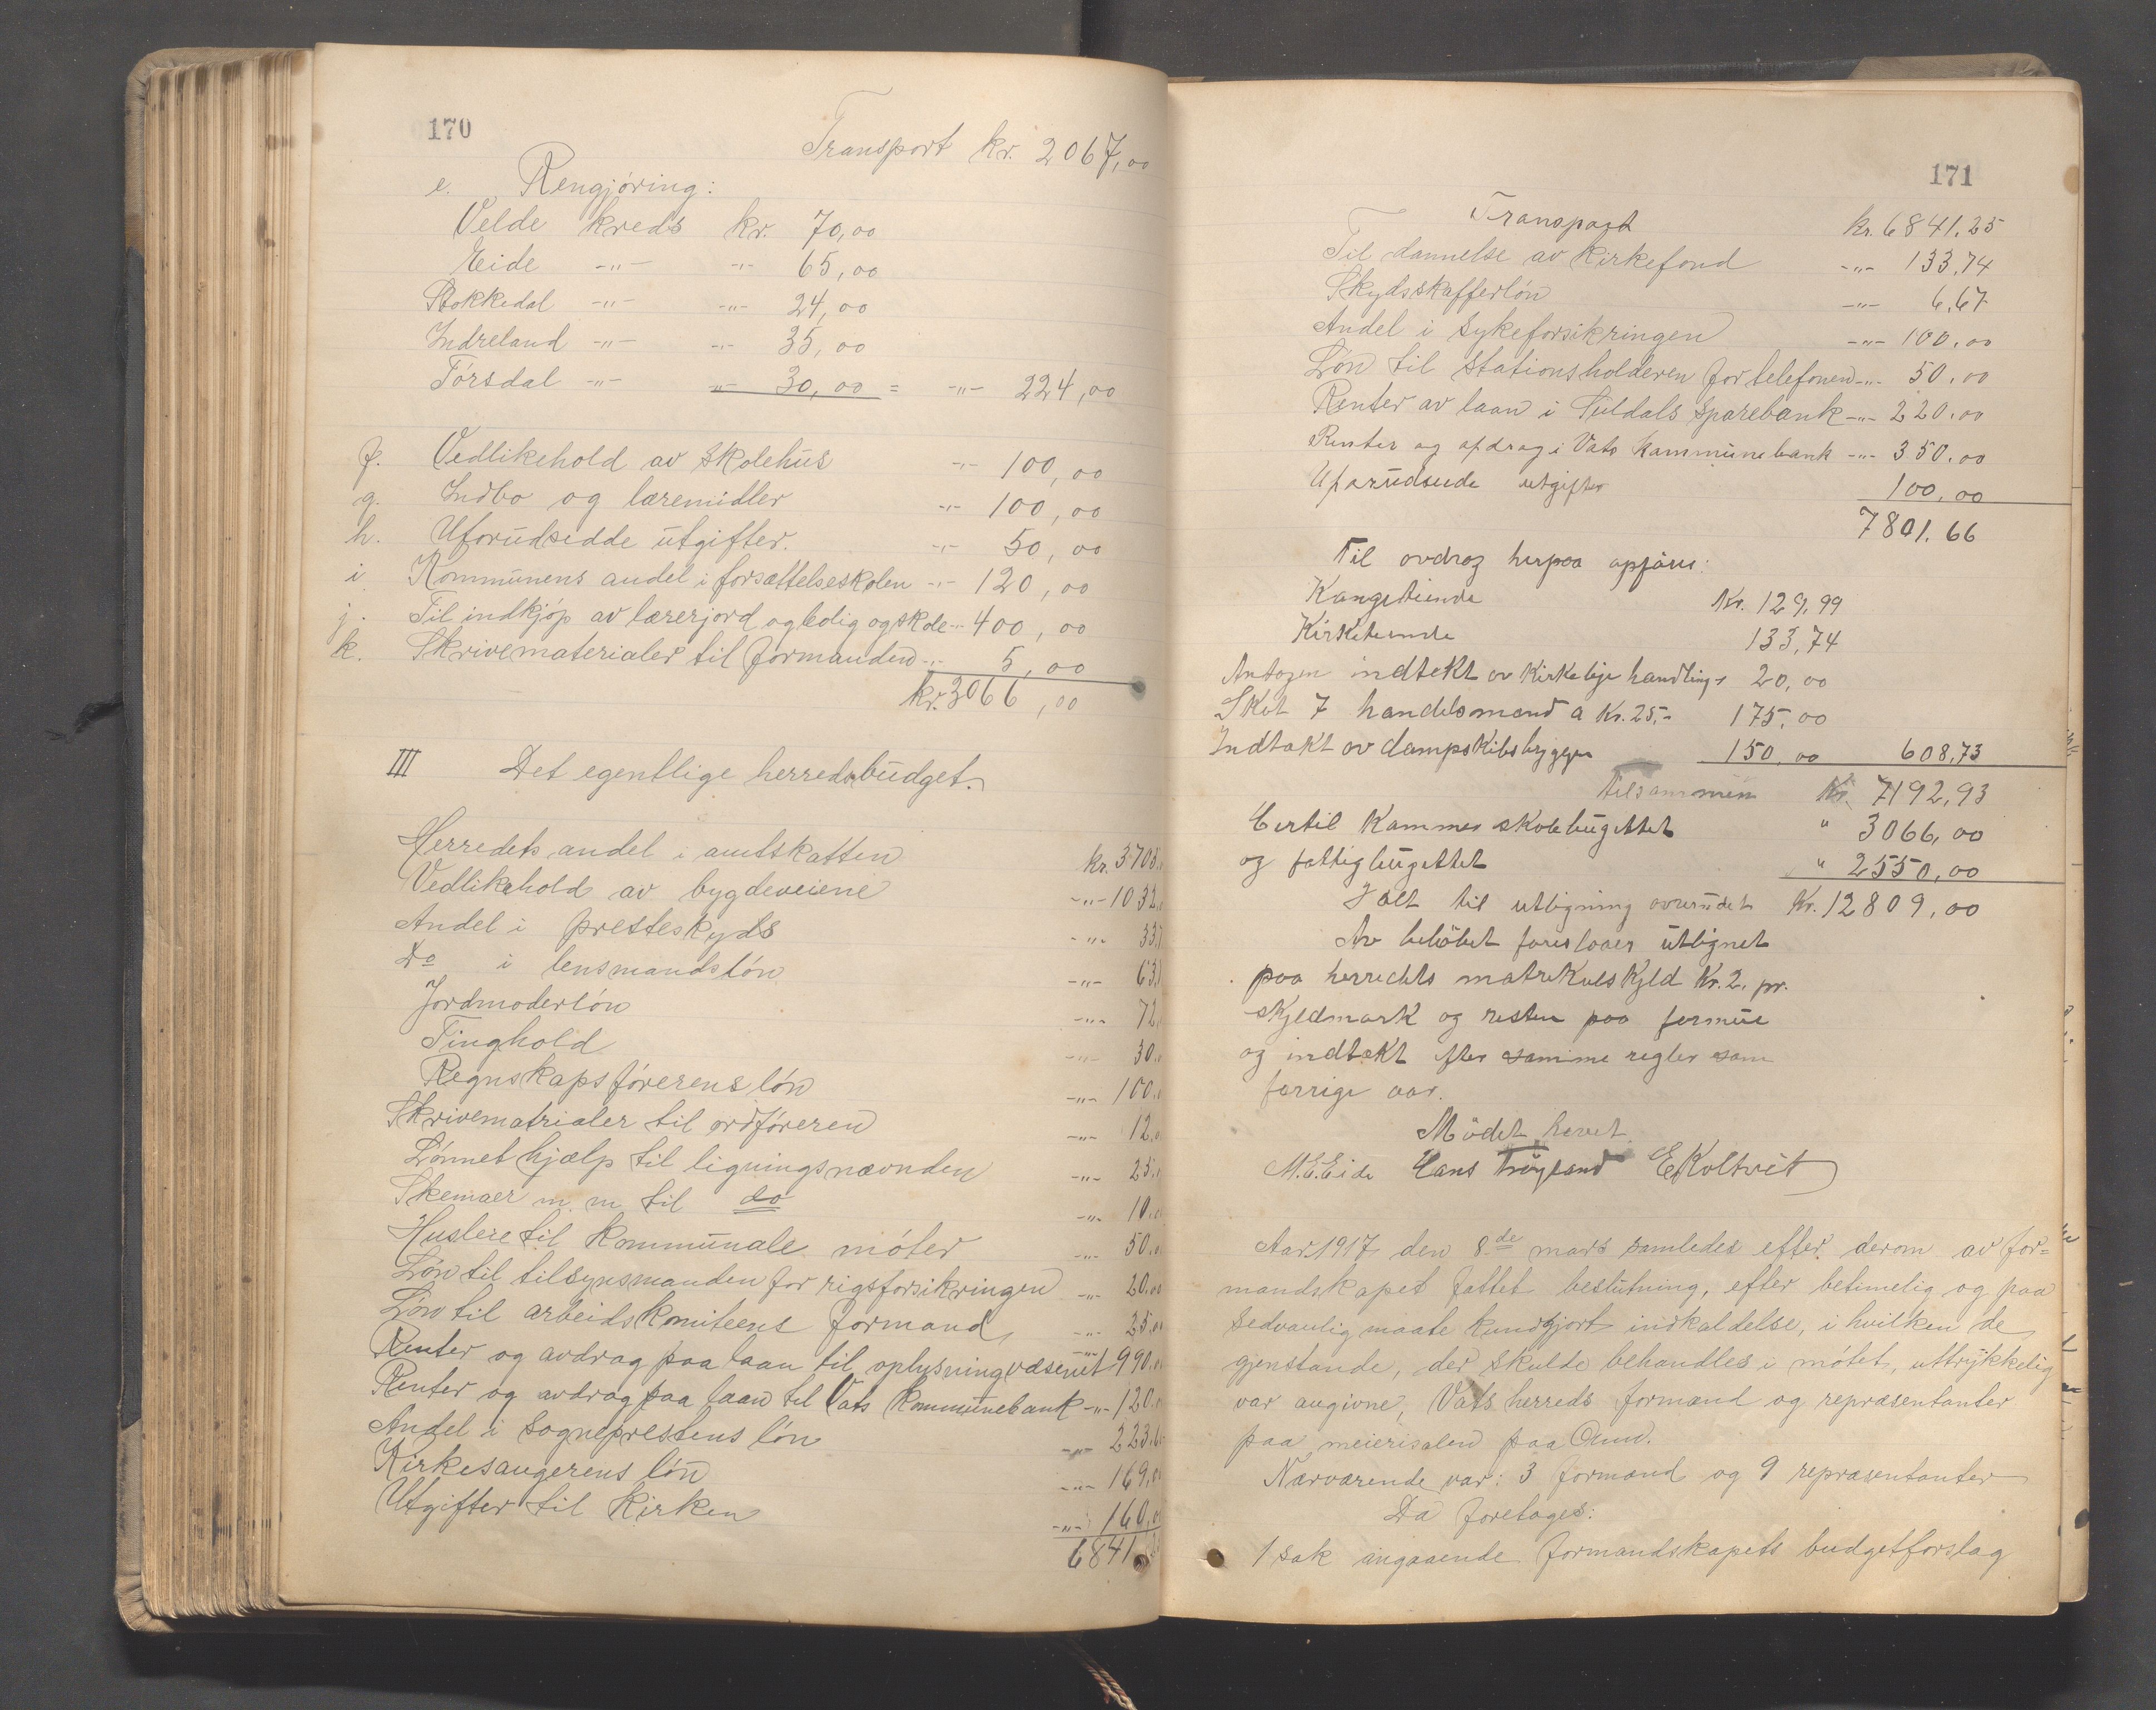 170
Transport kr. 2067,00
e. Rengjöring:
Velde kreds kr. 70,00
Eide -"- -"- 65,00
Stokkedal -"- -"- 24,00
Indreland -"- -"- 35,00
Törsdal -"- -"- 30,00 = -"- 224,00
f. Vedlikehold av skolehus -"- 100,00
g. Indbo og læremidler -"- 100,00
h. Uforudsedde utgifter. -"- 50,00
i Kommunens andel i forsættelseskolen -"- 120,00
j. Til indkjöp av lærerjord og bolig og skole -"- 400,00
k. Skrivematerialer til formanden -"- 5,00
kr. 3066,00
III Det egentlige herredsbudget.
Herredets andel i amtskatten kr. 3705,
Vedlikehold av bygdeveiene -"- 1032,
Andel i presteskyds -"- 33,
Do i lensmandslön -"- 63,
Jordmoderlön -"- 72,
Tinghold -"- 30,
Regnskapsförerens lön -"- 100,
Skrivematrialer til ordföreren -"- 12,0
Lönnet hjælp til ligningsnævnden -"- 25,
Skemaer m. m. til do -"- 10,0
Husleie til kommunale möter -"- 50,0
Lön til tilsynsmanden for rigsforsikringen -"- 20,00
Lön til arbeidskomiteens formand -"- 25,00
Renter og avdrag paa laan til oplysningvæsenet -"- 990,0
Renter og avdrag paa laan til Vats kommunebank -"- 120,0
Andel i sogneprestens lön -"- 223,6
Kirkesangerens lön -"- 169,
Utgifter til kirken -"- 160,0
6841
171
Transport kr. 6841,25
Til dannelse av kirkefond -"- 133,74
Skydsskafferlön -"- 6,67
Andel i sykeforsikringen -"- 100,00
Lön til stationsholderen for telefonen -"- 50,00
Renter av laan i Suldals sparebank -"- 220,00
Renter og afdrag i Vats kommunebank -"- 350,00
Uforudseede utgifter 100,00
7801,66
Til avdrag herpaa opföres:
Kongetiende Kr. 129,99
Kirketiende 133,74
Antagen indtekt av kirkelige handlinger 20,00
Skat 7 handelsmænd a Kr. 25,- 175,00
Indtekt av dampskibsbryggen 150,00 608,73
Tilsammen Kr. 7192,93
Hertil kommer skolebugettet " 3066,00
og fattigbugettet " 2550,00
Ialt til utligning avrundet Kr. 12809,00
Av belöbet foreslaaes utlignet
paa herredets matrikulskyld Kr. 2. pr.
skyldmark og resten paa formue
og indtekt efter samme regler som
forrige aar.
Mödet hævet.
M. E. Eide Hans Tröyland E Koltveit
Aar 1917 den 8de mars samledes efter derom av for=
mandskapet fattet beslutning, efter betimelig og paa
sedvanlig maate kundgjort indkaldelse, i hvilken de
gjenstande, der skulde behandles i mötet, uttrykkelig
var angivne, Vats herreds formænd og repræsentanter
paa meierisalen paa Aam.
Nærværende var: 3 formænd og 9 repræsentanter
Da foretages:
1 sak angaaende formandskapets budgetforslag